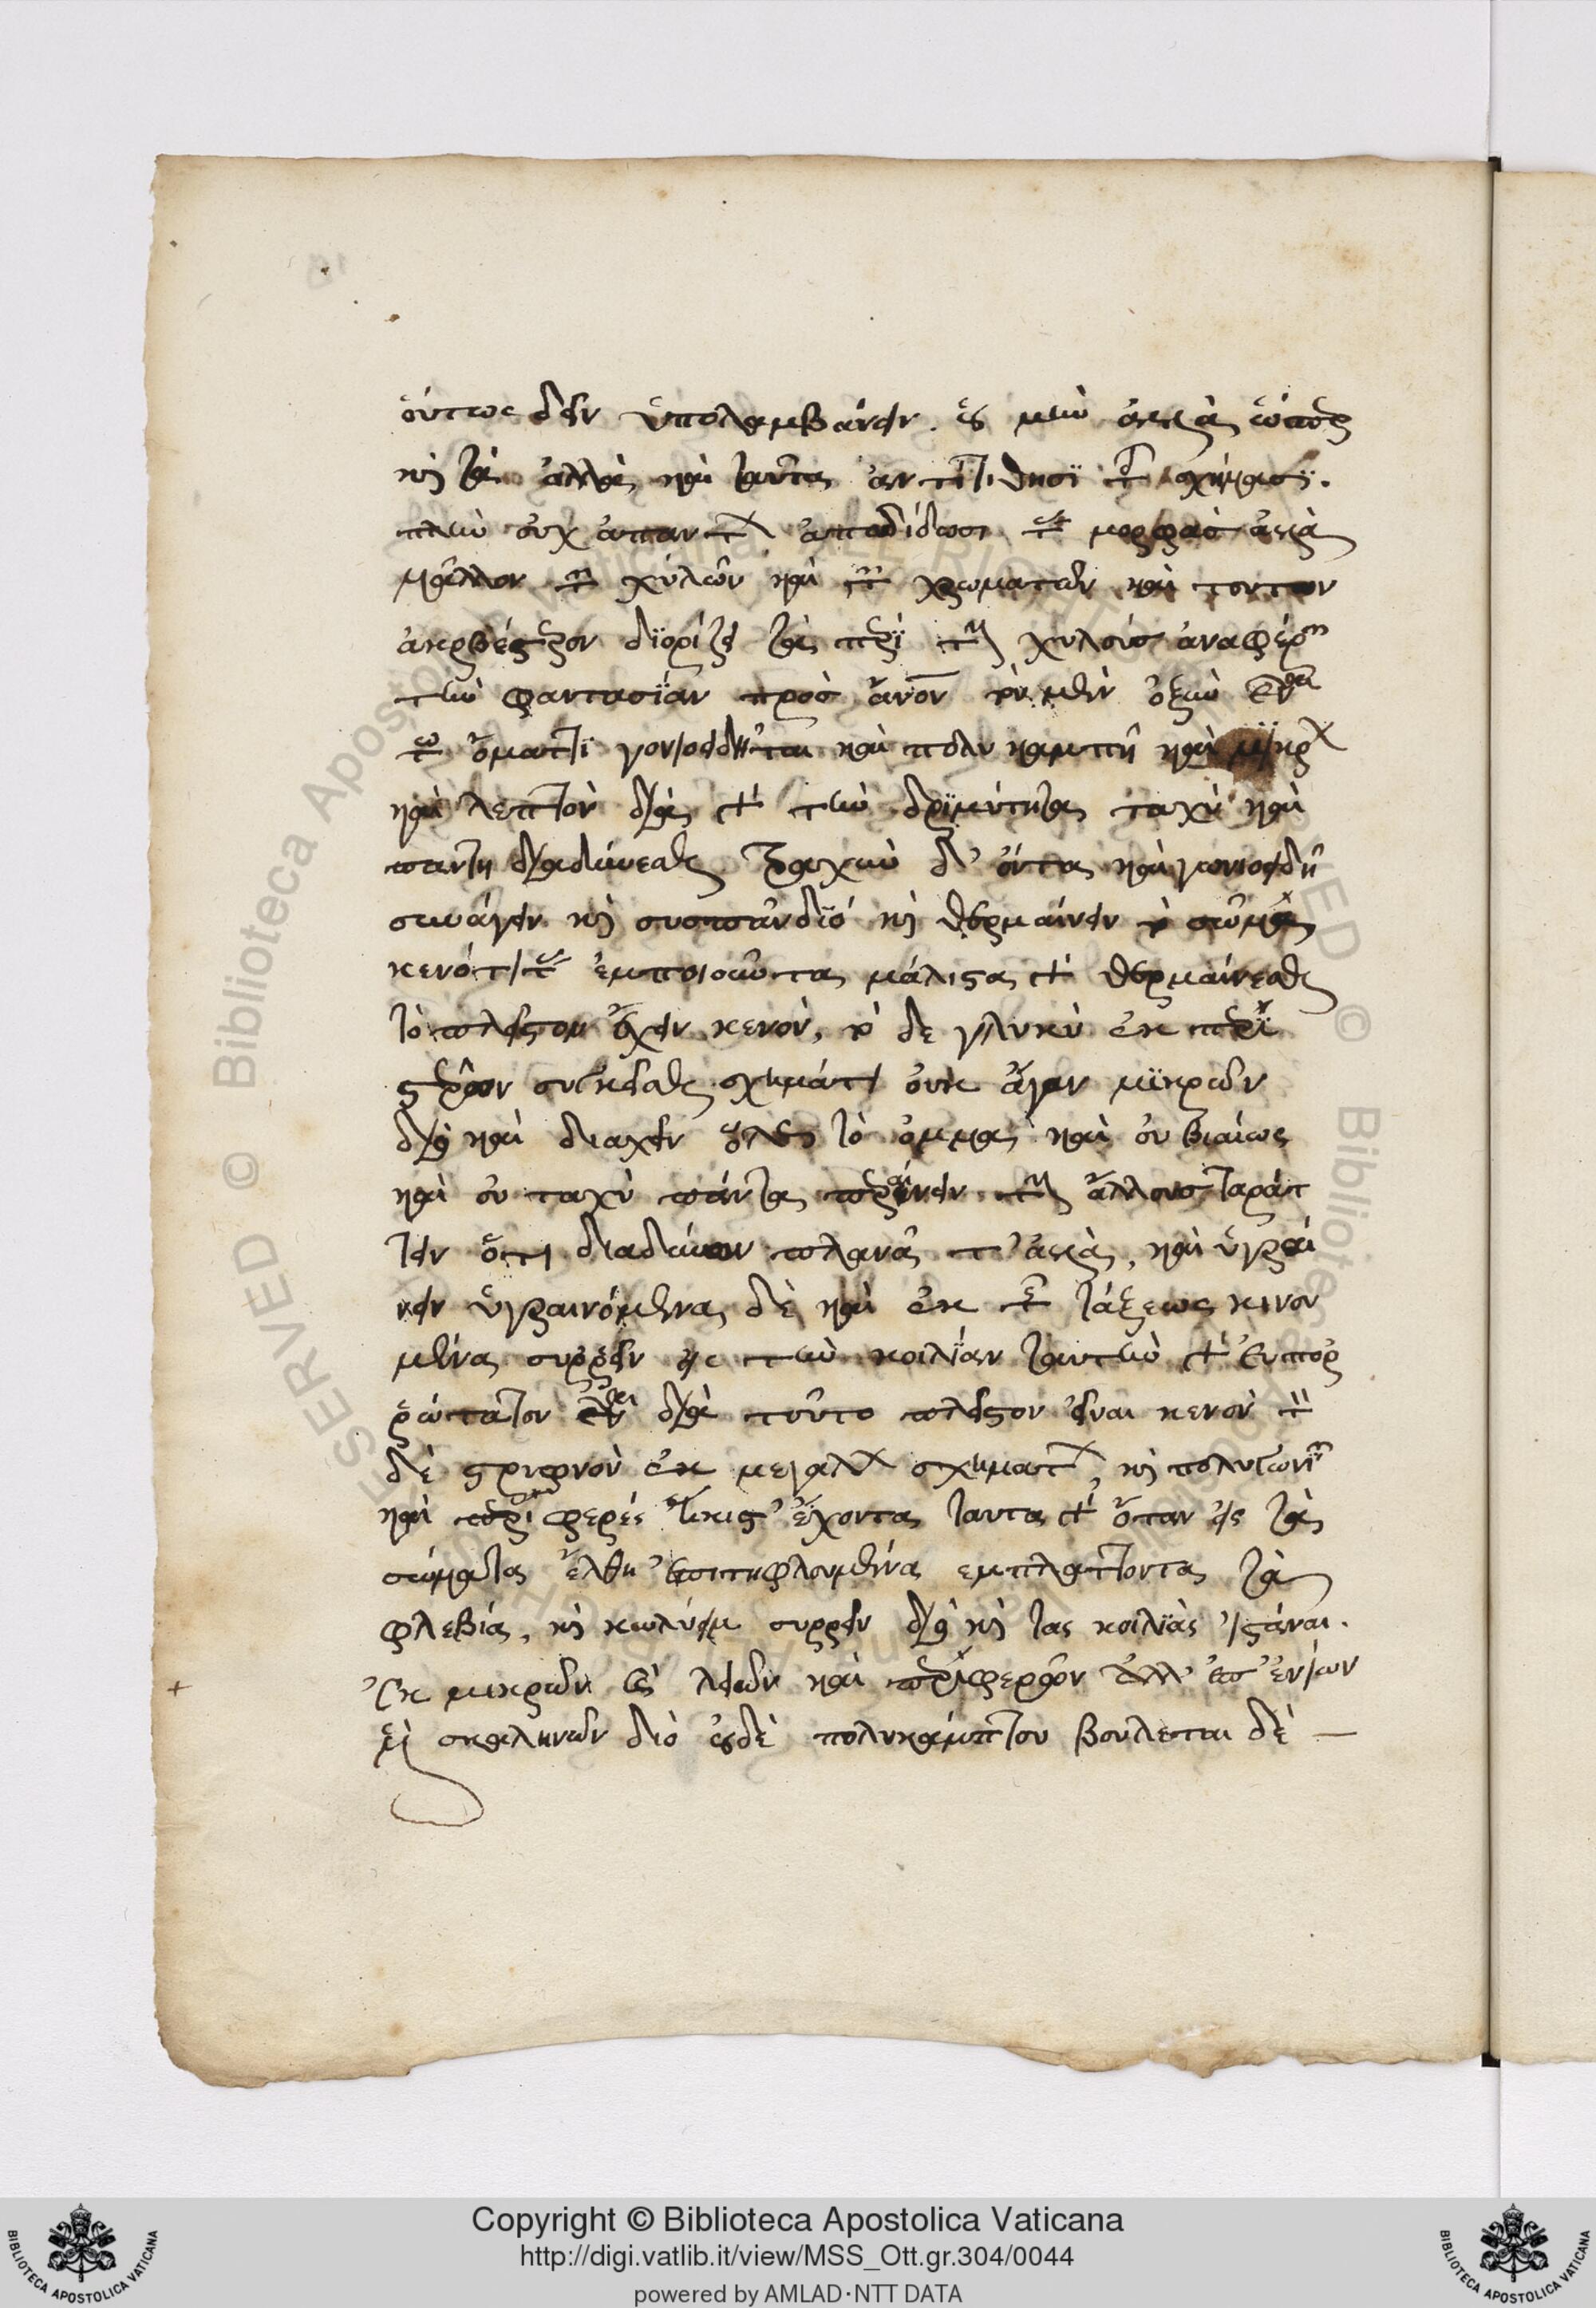 οὕτως δεῖν ὑπολαμβάνειν. οὐ μὴν ἀλλὰ ὥσπερ
καὶ τὰ ἄλλα καὶ ταῦτα ἀντιτίθησϊ τοῖς σχήμασϊ.
πλὴν οὐχ ἁπάντων ἀποδίδωσι τὰς μορφὰς ἀλλὰ
μᾶλλον τῶν χυλῶν καὶ τῶν χρωμάτων καὶ τούτων
ἀκριβέστερον διορίζει τὰ περὶ τοὺς χυλοὺς ἀναφέρων
τὴν φαντασΐαν πρὸς ἄνον τὸν μὲν ὀξὺν εἶναι
τῷ ὄματι γονιοειδῆ τε καὶ πολυ καμπῆ καὶ μικρὸν
καὶ λεπτὸν διὰ γὰρ τὴν δριμύτητα ταχὺ καὶ
παντη διαδύνεσθαι τραχὺν δ' ὄντα καὶ γωνιοειδῆ
συνάγειν καὶ συσπᾶν διό καὶ θερμαίνειν τὸ σῶμα
κενότητας ἐμποιοῦντα μάλιστα γὰρ θερμαίνεσθαι
τὸ πλεῖστον ἔχειν κενόν, τὸ δε γλυκὺ ἐκ περϊ
συγκεῖσθαι σχημάτων οὐκ ἄγαν μικρῶν
διὸ καὶ διαχεῖν ὅλως τὸ ὄμμα καὶ οὐ βιαίως
καὶ οὐ ταχὺ πάντα περαίνειν τοὺς ἄλλους ταράτ
τειν ὅτι διαδύνων πλανᾶ τ' ἀλλὰ, καὶ ὑγραί
νειν ὑγραινόμενα δὲ καὶ ἐκ τῆς τάξεως κινου
μένα συρρεῖν εἰς τὴν κοιλΐαν ταυτὴν γὰρ εὐπορ
ρώτατον εἶναι διὰ τοῦτο πλεῖστον εἶναι κενὸν τὸν
δὲ στρυφνὸν ἐκ μεγάλων σχημάτων, καὶ πολυγωνίων
καὶ περὶ φερὲς ἥκιστ' ἔχοντα ταυτα γὰρ ὅταν εἰς τὰ
σώματα ἔλθη ἐπιτηφλουμένα εμπλάττοντα τὰ
φλεβία, καὶ κωλύειν συρρειν διὸ καὶ τας κοιλΐας ἱστάναι.
ἐκ μικρῶν καὶ λείων καὶ περιφερῶν
σκαληνῶν διὸ οὐδὲ πολυκάμπτου βούλεται δὲ